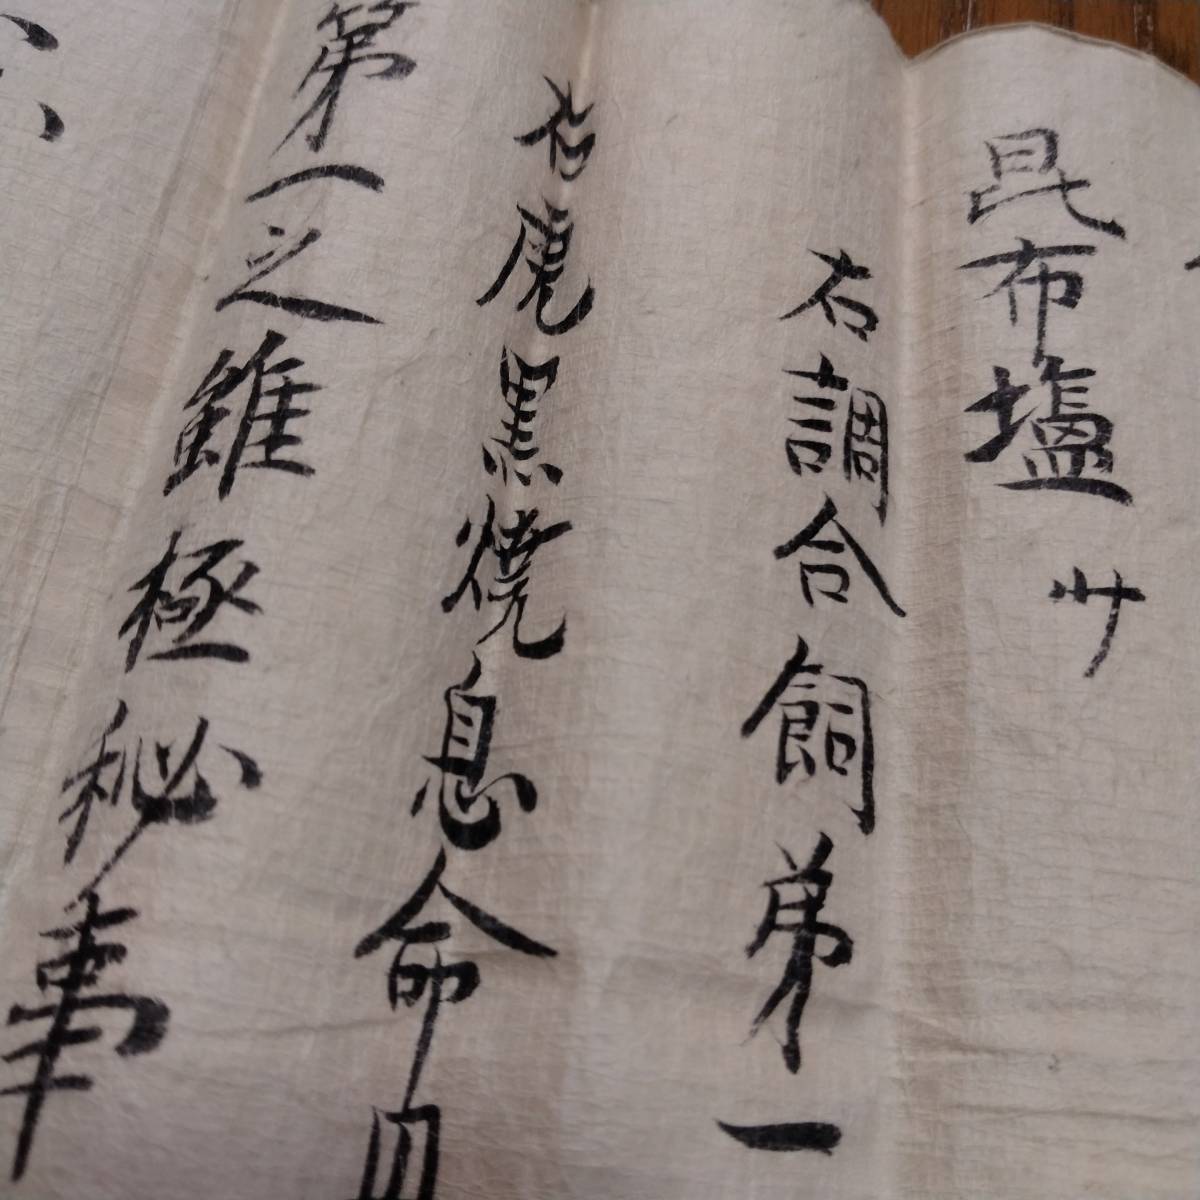 昆布塩 卅
右調合飼弟一
右虎黒焼息命
第一之雖極秘事